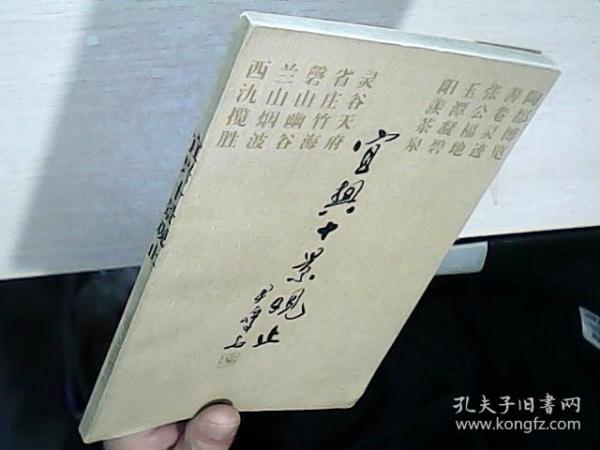 陶都博览
善卷灵迹
张公福地
玉潭凝碧
阳羡茶泉
灵谷天府
省庄竹海
磬山幽谷
兰山烟波
西氿揽胜
宜興十景观止
宜興十景观止
孔夫子旧书网
www.kongfz.com